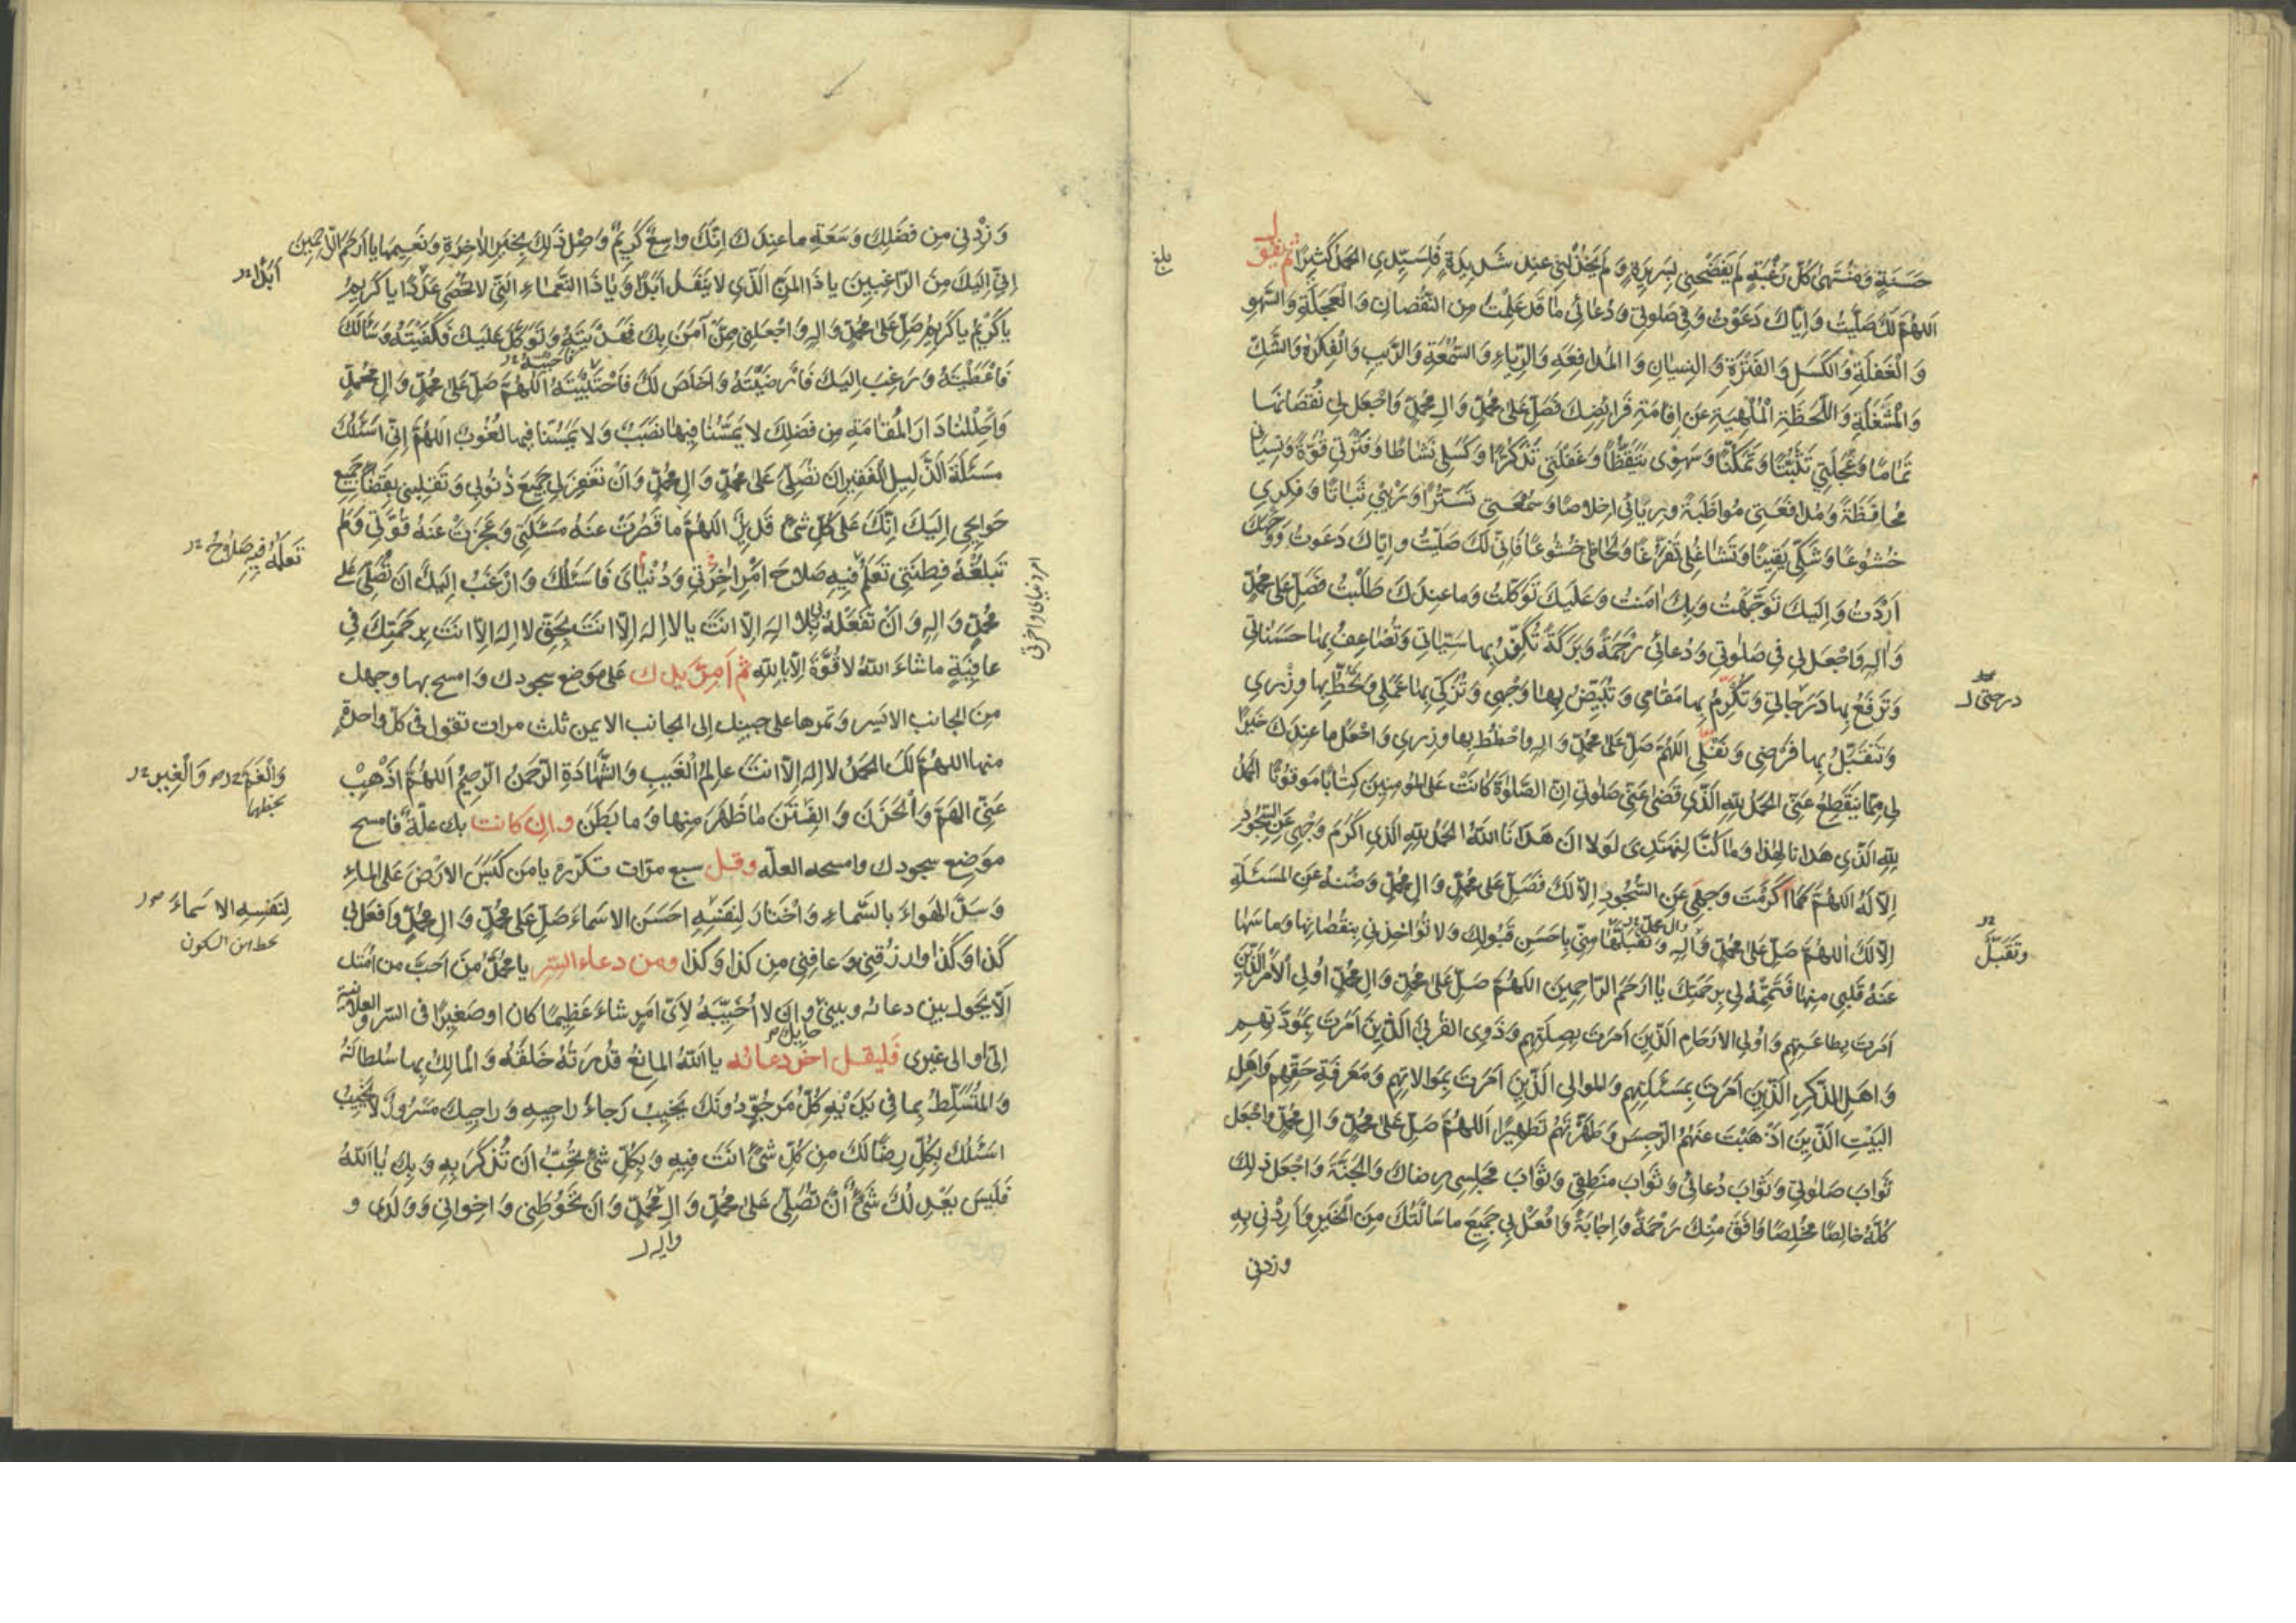 حَسَنَةٍ وَمُنْتَهىٰ كُلِّ رَغْبَةٍ لَمْ يَفْضَحْنِي بِسَرِيرَةٍ وَلَمْ يَخْذُلْنِي عِنْدَ شَدِيدَةٍ فَلِسَيِّدِي الْحَمْدُ كَثِيرًا ثم يقول
اَللّهُمَّ لَكَ صَلَّيْتُ وَاِيَّاكَ دَعَوْتُ وَفِي صَلوتِي وَدُعَائِي مَا قَدْ عَلِمْتَ مِنَ النُّقْصَانِ وَالْعَجَلَةِ وَالسَّهْوِ
وَالْغَفْلَةِ وَالْكَسَلِ وَالْفَتْرَةِ وَالنِّسْيَانِ وَالْمُدَافَعَةِ وَالرِّيَاءِ وَالسُّمْعَةِ وَالرَّيْبِ وَالْفِكْرَةِ وَالشَّكِّ
وَالْمَشْغَلَةِ وَاللَّحْظَةِ الْمُلْهِيَةِ عَنْ اِقَامَةِ فَرَائِضِكَ فَصَلِّ عَلىٰ مُحَمَّدٍ وَالِ مُحَمَّدٍ وَاجْعَلْ لِي نُقْصَانَهَا
تَمَامًا وَعَجَلَتِي تَثَبُّتًا وَتَمَكُّنًا وَسَهْوِي تَيَقُّظًا وَغَفْلَتِي تَذَكُّرًا وَكَسَلِي نَشَاطًا وَفَتْرَتِي قُوَّةً وَنِسْيَانِي
مُحَافَظَةً وَمُدَافَعَتِي مُوَاظَبَةً وَرِيَائِي اِخْلَاصًا وَسُمْعَتِي تَسَتُّرًا وَرَيْبِي ثَبَاتًا وَفِكْرِي
خُشُوعًا وَشَكِّي يَقِينًا وَتَشَاغُلِي تَفَرُّغًا وَلِحَاظِي خُشُوعًا فَاِنِّي لَكَ صَلَّيْتُ وَاِيَّاكَ دَعَوْتُ وَوَجْهَكَ
اَرَدْتُ وَاِلَيْكَ تَوَجَّهْتُ وَبِكَ اٰمَنْتُ وَعَلَيْكَ تَوَكَّلْتُ وَمَا عِنْدَكَ طَلَبْتُ فَصَلِّ عَلىٰ مُحَمَّدٍ
وَالِهِ وَاجْعَلْ لِي فِي صَلوٰتِي وَدُعَائِي رَحْمَةً وَبَرَكَةً تُكَفِّرُ بِهَا سَيِّئاتِي وَتُضَاعِفُ بِهَا حَسَنَاتِي
وَتَرْفَعُ بِهَا دَرَجَاتِي وَتُكَرِّمُ بِهَا مَقَامِي وَتُبَيِّضُ بِهَا وَجْهِي وَتُزَكِّي بِهَا عَمَلِي وَتَحُطُّ بِهَا وِزْرِي
درجتى
وَتَقَبَّلُ بِهَا فَرْضِي وَنَفْلِي اَللّهُمَّ صَلِّ عَلىٰ مُحَمَّدٍ وَالِهِ وَاحْطُطْ بِهَا وِزْرِي وَاجْعَلْ مَا عِنْدَكَ خَيْرًا
لِي مِمَّا يَنْقَطِعُ عَنِّي اَلْحَمْدُ لِلّهِ الَّذِي قَضىٰ عَنِّي صَلوٰتِي اِنَّ الصَّلوٰةَ كَانَتْ عَلَى الْمُؤْمِنِينَ كِتَابًا مَوْقُوتًا الحمد
لِلّهِ الَّذِي هَدَانَا لِهٰذَا وَمَا كُنَّا لِنَهْتَدِيَ لَوْلَا اَنْ هَدَانَا اللّهُ اَلْحَمْدُ لِلّهِ الَّذِي اَكْرَمَ وَجْهِي عَنِ السُّجُودِ
اِلَّا لَهُ اَللّهُمَّ كَمَا اَكْرَمْتَ وَجْهِي عَنِ السُّجُودِ اِلَّا لَكَ فَصَلِّ عَلىٰ مُحَمَّدٍ وَالِ مُحَمَّدٍ وَصُنْهُ عَنِ الْمَسْئَلَةِ
اِلَّا لَكَ اَللّهُمَّ صَلِّ عَلىٰ مُحَمَّدٍ وَالِهِ وَتَقَبَّلْهَا مِنِّي بِاَحْسَنِ قَبُولِكَ وَلَا تُؤَاخِذْنِي بِنُقْصَانِهَا وَمَا سَهَا
وَتَقَبَّلْ
عَنْهُ قَلْبِي مِنْهَا فَتَمِّمْهُ لِي بِرَحْمَتِكَ يَا اَرْحَمَ الرَّاحِمِينَ اَللّهُمَّ صَلِّ عَلىٰ مُحَمَّدٍ وَالِ مُحَمَّدٍ اُولِي الْاَمْرِ الَّذِينَ
اَمَرْتَ بِطَاعَتِهِمْ وَاُولِي الْاَرْحَامِ الَّذِينَ اَمَرْتَ بِصِلَتِهِمْ وَذَوِي الْقُرْبىٰ الَّذِينَ اَمَرْتَ بِمَوَدَّتِهِمْ
وَاَهْلِ الذِّكْرِ الَّذِينَ اَمَرْتَ بِمَسْئَلَتِهِمْ وَالْمَوَالِي الَّذِينَ اَمَرْتَ بِمُوَالَاتِهِمْ وَمَعْرِفَةِ حَقِّهِمْ وَاَهْلِ
الْبَيْتِ الَّذِينَ اَذْهَبْتَ عَنْهُمُ الرِّجْسَ وَطَهَّرْتَهُمْ تَطْهِيرًا اَللّهُمَّ صَلِّ عَلىٰ مُحَمَّدٍ وَالِ مُحَمَّدٍ وَاجْعَلْ
ثَوَابَ صَلوٰتِي وَثَوَابَ دُعَائِي وَثَوَابَ مَنْطِقِي وَثَوَابَ مَجْلِسِي رِضَاكَ وَالْجَنَّةَ وَاجْعَلْ ذٰلِكَ
كُلَّهُ خَالِصًا مُخْلِصًا وَافَقَ مِنْكَ رَحْمَةً وَاِجَابَةً وَافْعَلْ بِي جَمِيعَ مَا سَاَلْتُكَ مِنَ الْخَيْرِ وَاَرِدْنِي بِهِ
وزدنى
بلغ
وَزِدْنِي مِنْ فَضْلِكَ وَسَعَةِ مَا عِنْدَكَ اِنَّكَ وَاسِعٌ كَرِيمٌ وَصِلْ ذٰلِكَ بِخَيْرِ الْاٰخِرَةِ وَنَعِيمِهَا يَا اَرْحَمَ الرَّاحِمِينَ
اِنِّي اِلَيْكَ مِنَ الرَّاغِبِينَ يَا ذَا الْمَنِّ الَّذِي لَا يَنْفَدُ اَبَدًا وَيَا ذَا النَّعْمَاءِ الَّتِي لَا تُحْصىٰ عَدَدًا يَا كَرِيمُ
اَبَدًا
يَا كَرِيمُ يَا كَرِيمُ صَلِّ عَلىٰ مُحَمَّدٍ وَالِهِ وَاجْعَلْنِي مِمَّنْ اٰمَنَ بِكَ فَهَدَيْتَهُ وَتَوَكَّلَ عَلَيْكَ فَكَفَيْتَهُ وَسَاَلَكَ
فَاَعْطَيْتَهُ وَرَغِبَ اِلَيْكَ فَاَرْضَيْتَهُ وَاَخْلَصَ لَكَ فَاَنْجَيْتَهُ اَللّهُمَّ صَلِّ عَلىٰ مُحَمَّدٍ وَالِ مُحَمَّدٍ
وَاَحْلِلْنَا دَارَ الْمُقَامَةِ مِنْ فَضْلِكَ لَا يَمَسُّنَا فِيهَا نَصَبٌ وَلَا يَمَسُّنَا فِيهَا لُغُوبٌ اَللّهُمَّ اِنِّي اَسْئَلُكَ
مَسْئَلَةَ الذَّلِيلِ الْفَقِيرِ اَنْ تُصَلِّيَ عَلىٰ مُحَمَّدٍ وَالِ مُحَمَّدٍ وَاَنْ تَغْفِرَ لِي جَمِيعَ ذُنُوبِي وَتَقْلِبَنِي بِقَضَاءِ جَمِيعِ
حَوَائِجِي اِلَيْكَ اِنَّكَ عَلىٰ كُلِّ شَيْءٍ قَدِيرٌ اَللّهُمَّ مَا قَصُرَتْ عَنْهُ مَسْئَلَتِي وَعَجَزَتْ عَنْهُ قُوَّتِي وَلَمْ
تَعْلَمُ فِيهِ صَلَاحُ
تَبْلُغْهُ فِطْنَتِي تَعْلَمُ فِيهِ صَلَاحَ اَمْرِ اٰخِرَتِي وَدُنْيَايَ فَاَسْئَلُكَ وَاَرْغَبُ اِلَيْكَ اَنْ تُصَلِّيَ عَلىٰ
امر دنياى واخرتى
مُحَمَّدٍ وَالِهِ وَاَنْ تَفْعَلَهُ بِي بِلَا اِلٰهَ اِلَّا اَنْتَ يَا لَا اِلٰهَ اِلَّا اَنْتَ بِحَقِّ لَا اِلٰهَ اِلَّا اَنْتَ بِرَحْمَتِكَ فِي
عَافِيَةٍ مَا شَاءَ اللّهُ لَا قُوَّةَ اِلَّا بِاللّهِ ثم اَمِرَّ يدك على موضع سجودك وامسح بها وجهك
من الجانب الايسر وتمرها على جبينك الى الجانب الايمن ثلث مرات تقول في كل واحدة
منها اللّهُمَّ لَكَ الْحَمْدُ لَا اِلٰهَ اِلَّا اَنْتَ عَالِمُ الْغَيْبِ وَالشَّهَادَةِ الرَّحْمٰنُ الرَّحِيمُ اَللّهُمَّ اَذْهِبْ
عَنِّي الْهَمَّ وَالْحَزَنَ وَالْفِتَنَ مَا ظَهَرَ مِنْهَا وَمَا بَطَنَ وان كانت بك علّة فامسح
موضع سجودك وامسحه العلّه وقل سبع مرّات تكرّره يَا مَنْ كَبَسَ الْاَرْضَ عَلَى الْمَاءِ
وَسَدَّ الْهَوَاءَ بِالسَّمَاءِ وَاخْتَارَ لِنَفْسِهِ اَحْسَنَ الْاَسْمَاءِ صَلِّ عَلىٰ مُحَمَّدٍ وَالِ مُحَمَّدٍ وَافْعَلْ بِي
لِنَفْسِهِ الاسماءَ
كَذَا وَكَذَا وَارْزُقْنِي وَعَافِنِي مِنْ كَذَا وَكَذَا ومن دعاء السّر يا محمّد من احبّ من امتك
الّا يحول بين دعائه وبيني وان لا اُخَيِّبَهُ لِاَيِّ امرٍ شاء عظيمًا كان او صغيرًا في السّر والعلانية
اِلَيَّ او الى غيري فليقل اخر دعائه يا اللّهُ الْمَانِعُ قُدْرَتُهُ خَلْقَهُ وَالْمَالِكُ بِهَا سُلْطَانَهُ
وَالْمُتَسَلِّطُ بِمَا فِي يَدَيْهِ كُلُّ مَرْجُوٍّ دُونَكَ يَخِيبُ رَجَاءُ رَاجِيهِ وَرَاجِيكَ مَسْرُورٌ لَا يَخِيبُ
اَسْئَلُكَ بِكُلِّ رِضًا لَكَ مِنْ كُلِّ شَيْءٍ اَنْتَ فِيهِ وَبِكُلِّ شَيْءٍ تُحِبُّ اَنْ تُذْكَرَ بِهِ وَبِكَ يَا اَللّهُ
فَلَيْسَ يَعْدِلُكَ شَيْءٌ اَنْ تُصَلِّيَ عَلىٰ مُحَمَّدٍ وَالِ مُحَمَّدٍ وَاَنْ تَحُوطَنِي وَاِخْوَانِي وَوَلَدِي وَ
واله